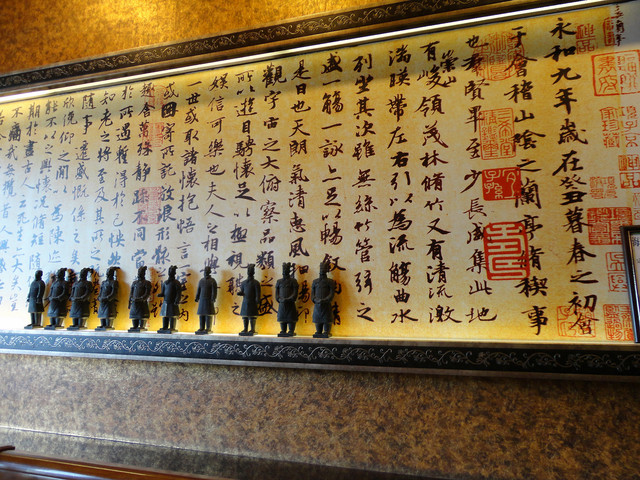 永和九年歲在癸丑暮春之初會
于會稽山陰之蘭亭脩稧事
也羣賢畢至少長咸集此地
有崇山峻領茂林脩竹又有清流激
湍暎帶左右引以為流觴曲水
列坐其次雖無絲竹管弦之
盛一觴一詠亦足以暢敘情
是日也天朗氣清惠風暢仰
觀宇宙之大俯察品類之盛
所以遊目騁懷足以極視聽之
娛信可樂也夫人之相與
一世或取諸懷抱悟言一室之內
或因寄所託放浪形骸之
趣舍萬殊靜躁不同當
於所遇蹔得於己怏然
知老之將至及其所之
隨事遷感慨係之矣
欣俛仰之閒以為陳迹
能不以之興懷況脩短隨
期於盡古人云死生亦大矣
不痛哉每攬昔人興感之